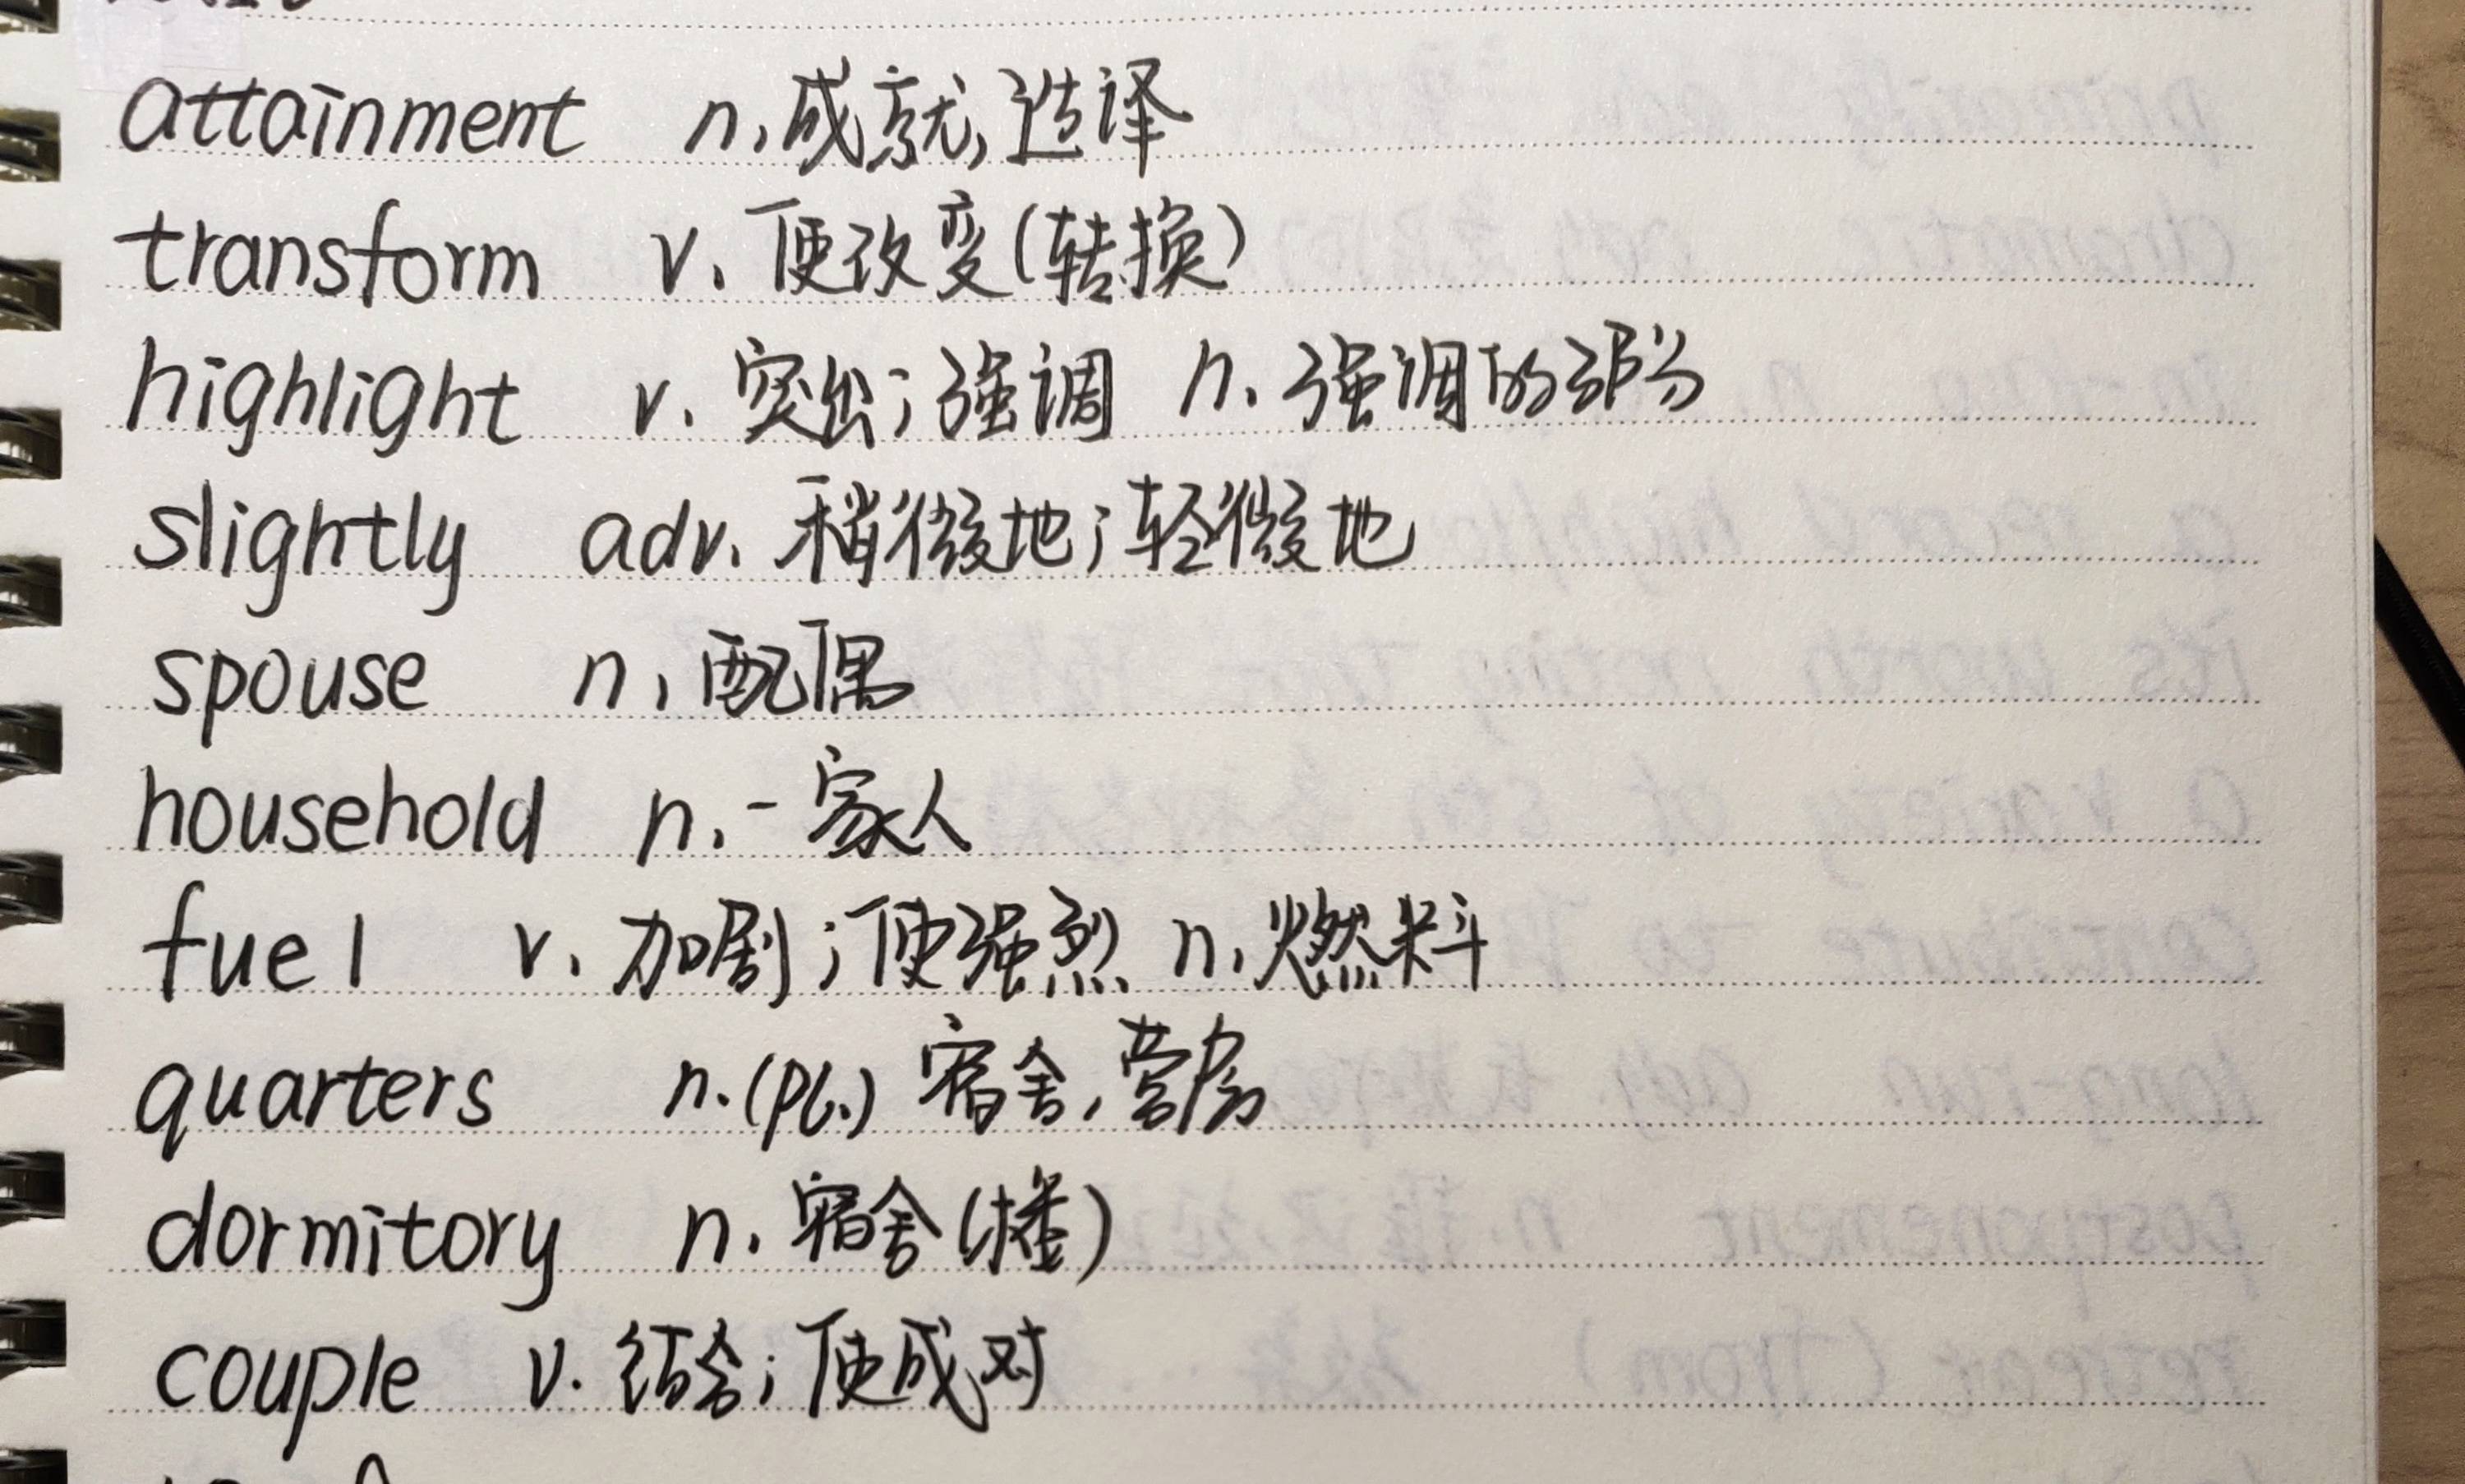 attainment n. 成就, 造译
transform v. 使改变(转换)
highlight v. 突出; 强调 n. 强调的部分
slightly adv. 稍微地; 轻微地
spouse n. 配偶
household n. 一家人
fuel v. 加剧; 使强烈 n. 燃料
quarters n. (pl.) 宿舍, 营房
dormitory n. 宿舍(楼)
couple v. 结合; 使成对